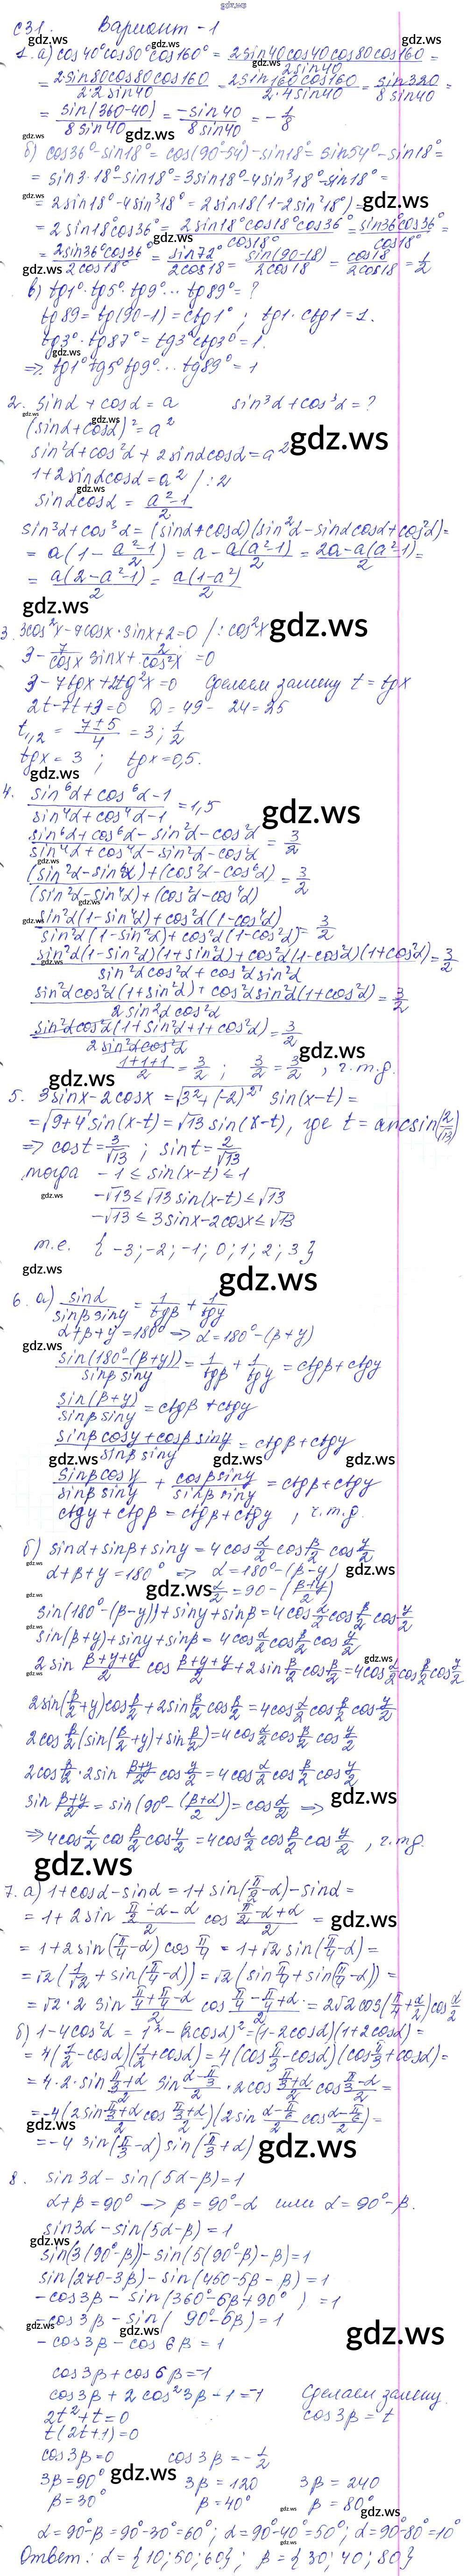 gdz.ws
С31. Вариант - 1
1. а) cos40° cos80° cos160° = 2sin40 cos40 cos80 cos160 / 2sin40 =
= 2sin80 cos80 cos160 / 2·2 sin40 = 2sin160 cos160 / 2·4sin40 = sin320 / 8sin40 =
= sin(360-40) / 8sin40 = -sin40 / 8sin40 = -1/8
б) cos36° - sin18° = cos(90°-54°) - sin18° = sin54° - sin18° =
= sin3·18° - sin18° = 3sin18° - 4sin³18° - sin18° =
= 2sin18° - 4sin³18° = 2sin18(1-2sin²18°) =
= 2sin18°cos36° = 2sin18°cos18°cos36° / cos18° = sin36°cos36° / cos18° =
= 2sin36°cos36° / 2cos18° = sin72° / 2cos18 = sin(90-18) / 2cos18 = cos18 / 2cos18 = 1/2
в) tg1°·tg5°·tg9°... tg89° = ?
tg89 = tg(90-1) = ctg1° ; tg1·ctg1 = 1.
tg3°·tg87° = tg3°ctg3° = 1.
=> tg1°tg5°tg9°... tg89° = 1
2. sinα + cosα = a sin³α + cos³α = ?
(sinα + cosα)² = a²
sin²α + cos²α + 2sinαcosα = a²
1 + 2sinαcosα = a² /:2
sinαcosα = a²-1 / 2
sin³α + cos³α = (sinα + cosα)(sin²α - sinαcosα + cos²α) =
= a(1 - a²-1 / 2) = a - a(a²-1) / 2 = 2a - a(a²-1) / 2 =
= a(2-a²-1) / 2 = a(1-a²) / 2
3. 3cos²x - 7cosx·sinx + 2 = 0 /:cos²x
3 - 7/cosx sinx + 2/cos²x = 0
3 - 7tgx + 2tg²x = 0 Сделаем замену t = tgx
2t - 7t + 3 = 0 D = 49 - 24 = 25
t₁,₂ = 7±5 / 4 = 3 ; 1/2
tgx = 3 ; tgx = 0,5.
4. sin⁶α + cos⁶α - 1 / sin⁴α + cos⁴α - 1 = 1,5
sin⁶α + cos⁶α - sin²α - cos²α / sin⁴α + cos⁴α - sin²α - cos²α = 3/2
(sin²α - sin⁶α) + (cos²α - cos⁶α) / (sin²α - sin⁴α) + (cos²α - cos⁴α) = 3/2
sin²α(1-sin⁴α) + cos²α(1-cos⁴α) / sin²α(1-sin²α) + cos²α(1-cos²α) = 3/2
sin²α(1-sin²α)(1+sin²α) + cos²α(1-cos²α)(1+cos²α) / sin²αcos²α + cos²αsin²α = 3/2
sin²αcos²α(1+sin²α) + cos²αsin²α(1+cos²α) / 2sin²αcos²α = 3/2
sin²αcos²α(1+sin²α+1+cos²α) / 2sin²αcos²α = 3/2
1+1+1 / 2 = 3/2 ; 3/2 = 3/2 , ч.т.д.
5. 3sinx - 2cosx = √3²+(-2)² sin(x-t) =
= √9+4 sin(x-t) = √13 sin(x-t), где t = arcsin(2/√13)
=> cost = 3/√13 ; sint = 2/√13
тогда -1 ≤ sin(x-t) ≤ 1
-√13 ≤ √13 sin(x-t) ≤ √13
-√13 ≤ 3sinx - 2cosx ≤ √13
т.е. {-3; -2; -1; 0; 1; 2; 3}
6. а) sinα / sinβ sinγ = 1/tgβ + 1/tgγ
α+β+γ = 180° => α = 180° - (β+γ)
sin(180°-(β+γ)) / sinβ sinγ = 1/tgβ + 1/tgγ = ctgβ + ctgγ
sin(β+γ) / sinβ sinγ = ctgβ + ctgγ
sinβ cosγ + cosβ sinγ / sinβ sinγ = ctgβ + ctgγ
sinβ cosγ / sinβ sinγ + cosβ sinγ / sinβ sinγ = ctgβ + ctgγ
ctgγ + ctgβ = ctgβ + ctgγ , ч.т.д.
б) sinα + sinβ + sinγ = 4cos α/2 cos β/2 cos γ/2
α+β+γ = 180° => α = 180° - (β-γ)
α/2 = 90 - (β+γ / 2)
sin(180°-(β-γ)) + sinγ + sinβ = 4cos α/2 cos β/2 cos γ/2
sin(β+γ) + sinγ + sinβ = 4cos α/2 cos β/2 cos γ/2
2sin β+γ+γ / 2 cos β+γ+γ / 2 + 2sin β/2 cos β/2 = 4cos α/2 cos β/2 cos γ/2
2sin(β/2+γ)cos β/2 + 2sin β/2 cos β/2 = 4cos α/2 cos β/2 cos γ/2
2cos β/2 (sin(β/2+γ) + sin β/2) = 4cos α/2 cos β/2 cos γ/2
2cos β/2 · 2sin β+γ / 2 cos γ/2 = 4cos α/2 cos β/2 cos γ/2
sin β+γ / 2 = sin(90° - (β+α / 2)) = cos α/2 =>
=> 4cos α/2 cos β/2 cos γ/2 = 4cos α/2 cos β/2 cos γ/2 , ч.т.д.
7. а) 1 + cosα - sinα = 1 + sin(π/2 - α) - sinα =
= 1 + 2sin π/2-α-α / 2 cos π/2-α+α / 2 =
= 1 + 2sin(π/4-α) cos π/4 = 1 + √2 sin(π/4-α) =
= √2(1/√2 + sin(π/4-α)) = √2(sin π/4 + sin(π/4-α)) =
= √2·2 sin π/4+π/4-α / 2 cos π/4-π/4+α / 2 = 2√2 cos(π/4+α/2) cos α/2
б) 1 - 4cos²α = 1² - (2cosα)² = (1-2cosα)(1+2cosα) =
= 4(1/2 - cosα)(1/2 + cosα) = 4(cos π/3 - cosα)(cos π/3 + cosα) =
= 4·2·sin π/3+α / 2 sin α-π/3 / 2 · 2cos π/3+α / 2 cos π/3-α / 2 =
= -4(2sin π/3+α / 2 cos π/3+α / 2)(2sin α-π/6 / 2 cos α-π/6 / 2) =
= -4 sin(π/3-α) sin(π/3+α)
8. sin3α - sin(5α-β) = 1
α+β = 90° -> β = 90°-α или α = 90°-β.
sin3α - sin(5α-β) = 1
sin(3(90°-β)) - sin(5(90°-β)-β) = 1
sin(270-3β) - sin(450-5β-β) = 1
-cos3β - sin(360°-6β+90°) = 1
-cos3β - sin( 90°-6β) = 1
-cos3β - cos6β = 1
cos3β + cos6β = -1
cos3β + 2cos²3β - 1 = -1 Сделаем замену
2t² + t = 0 cos3β = t
t(2t+1) = 0
cos3β = 0 cos3β = -1/2
3β = 90° 3β = 120 3β = 240
β = 30° β = 40° β = 80°
α = 90°-β = 90°-30° = 60° ; α = 90°-40° = 50° ; α = 90°-80° = 10°
Ответ: α = {10; 50; 60} ; β = {30; 40; 80}